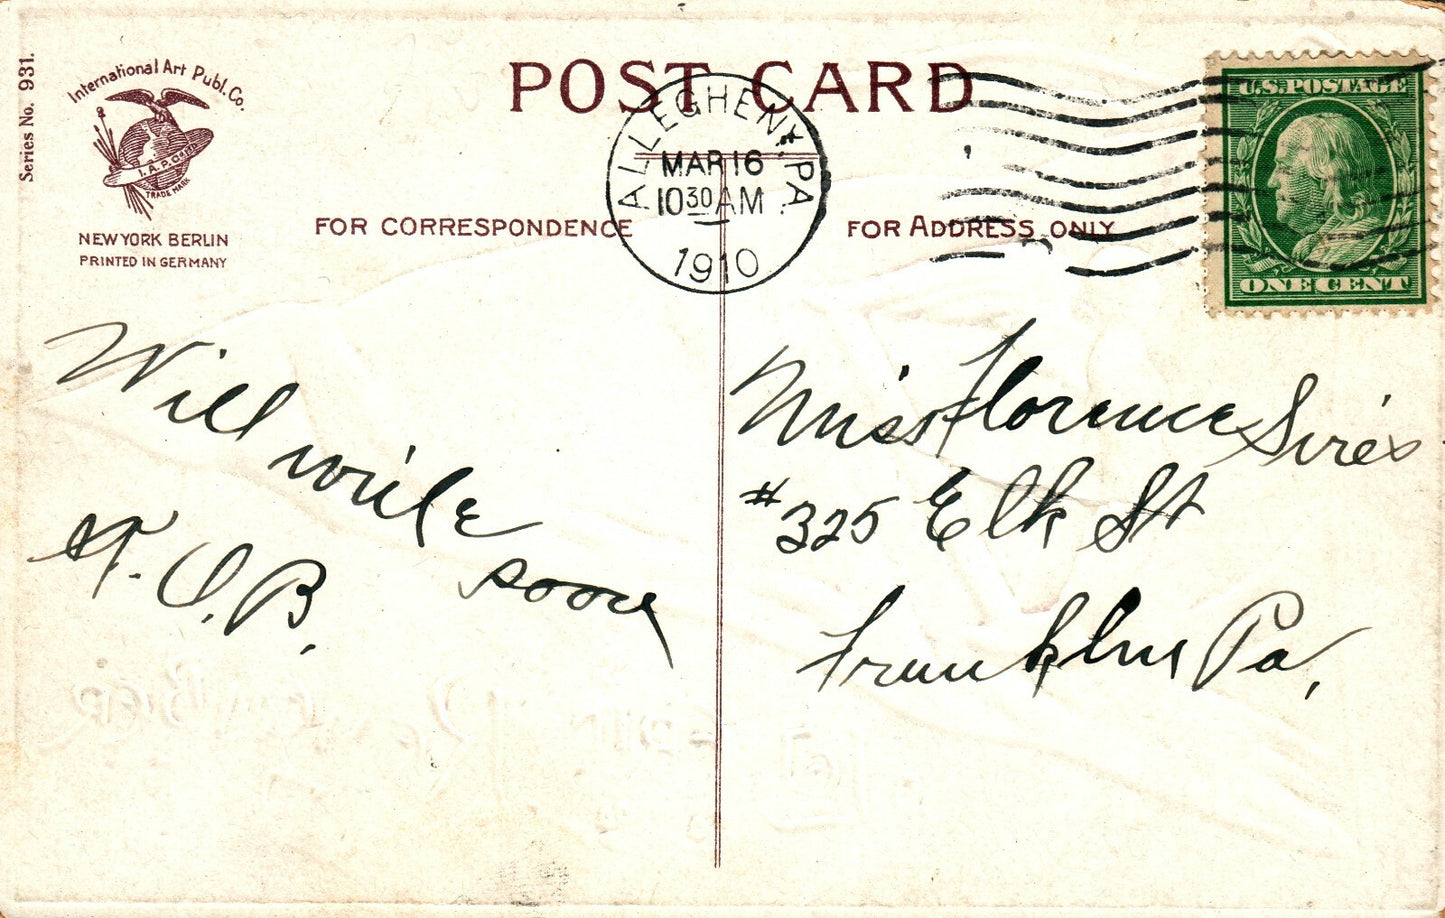 Series No. 931.
International Art Publ. Co.
I. A. P. Co.
TRADE MARK
NEW YORK BERLIN
PRINTED IN GERMANY
POST CARD
ALLEGHENY, PA.
MAR 16
10 30 AM
1910
FOR CORRESPONDENCE
FOR ADDRESS ONLY
U.S. POSTAGE
ONE CENT
Will
write
soon
H. O. B.
Miss Florence
#325 Elk St
Franklin Pa,